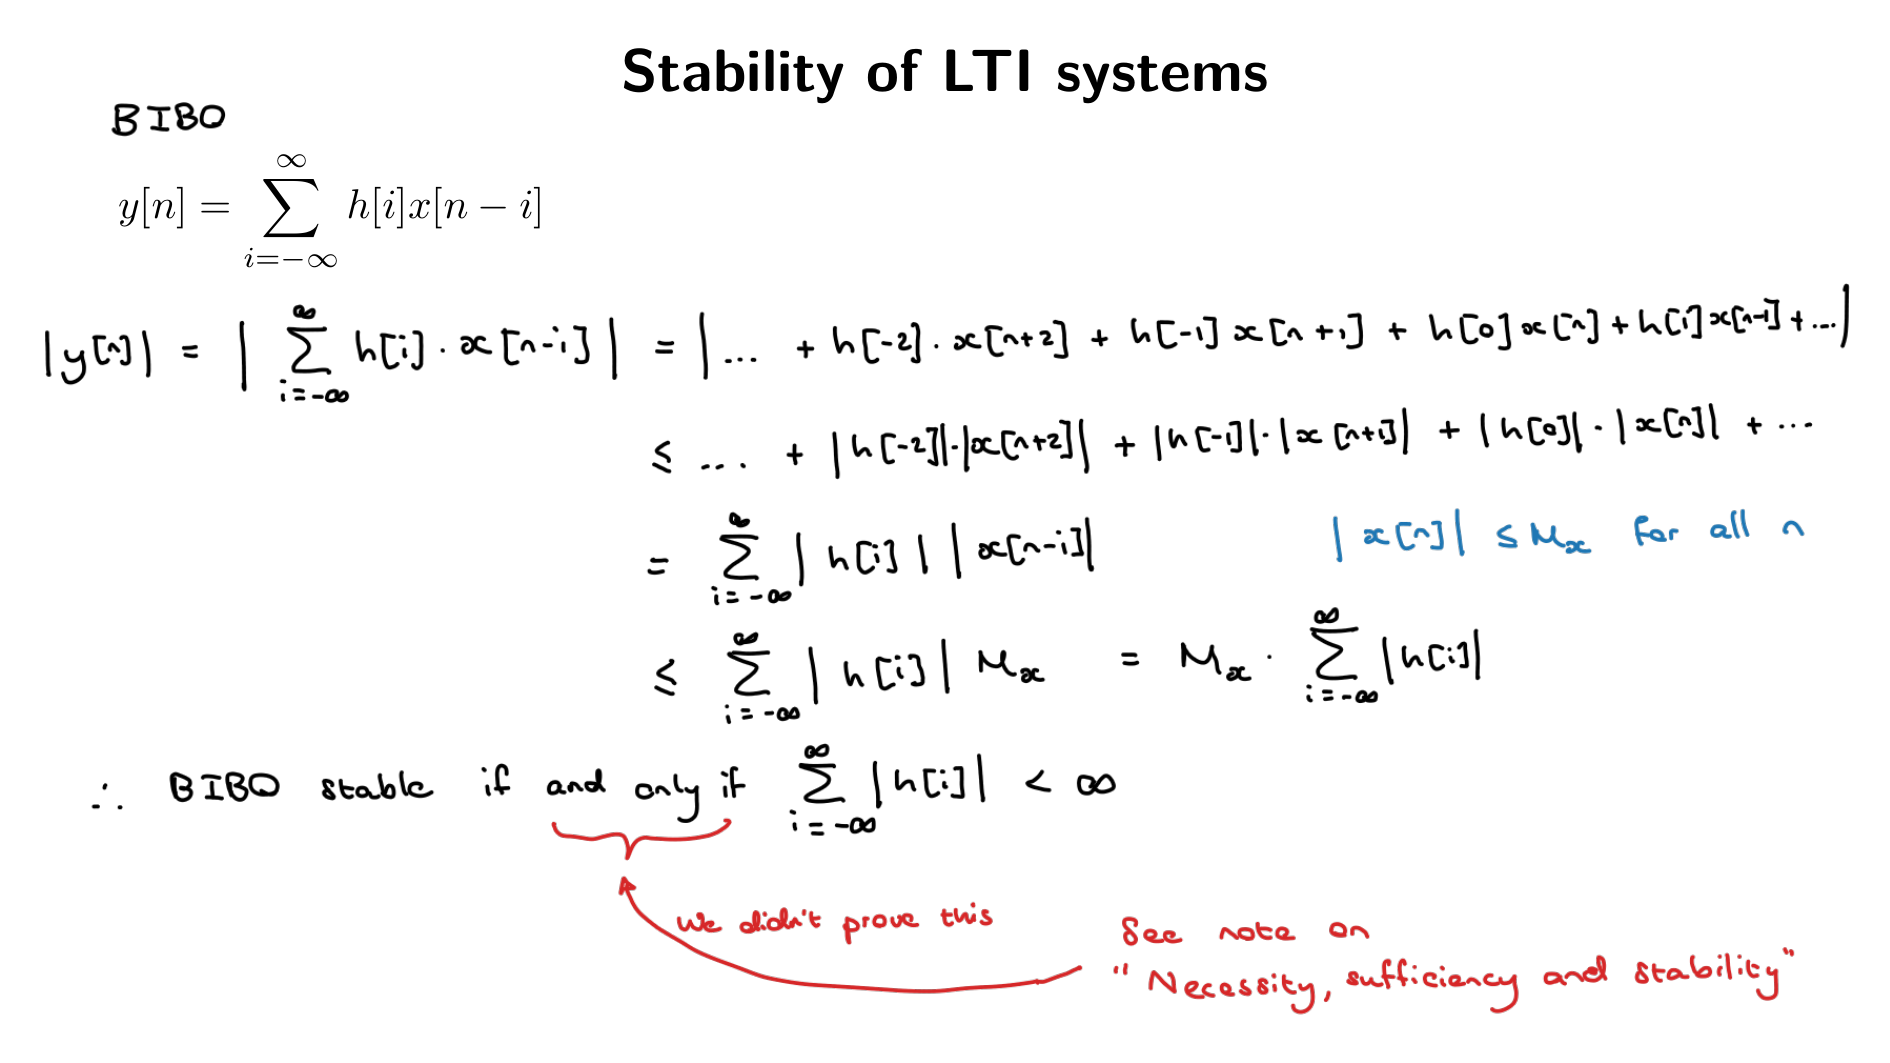 Stability of LTI systems
BIBO
y[n] = ∑_{i=-∞}^{∞} h[i]x[n − i]
|y[n]| = | ∑_{i=-∞}^{∞} h[i] · x[n-i] | = | ... + h[-2] · x[n+2] + h[-1] x[n+1] + h[0] x[n] + h[1] x[n-1] + ... |
≤ ... + |h[-2]|·|x[n+2]| + |h[-1]|·|x[n+1]| + |h[0]|·|x[n]| + ...
= ∑_{i=-∞}^{∞} |h[i]| |x[n-i]|
|x[n]| ≤ M_x for all n
≤ ∑_{i=-∞}^{∞} |h[i]| M_x = M_x · ∑_{i=-∞}^{∞} |h[i]|
∴ BIBO stable if and only if ∑_{i=-∞}^{∞} |h[i]| < ∞
We didn't prove this
See note on
"Necessity, sufficiency and stability"